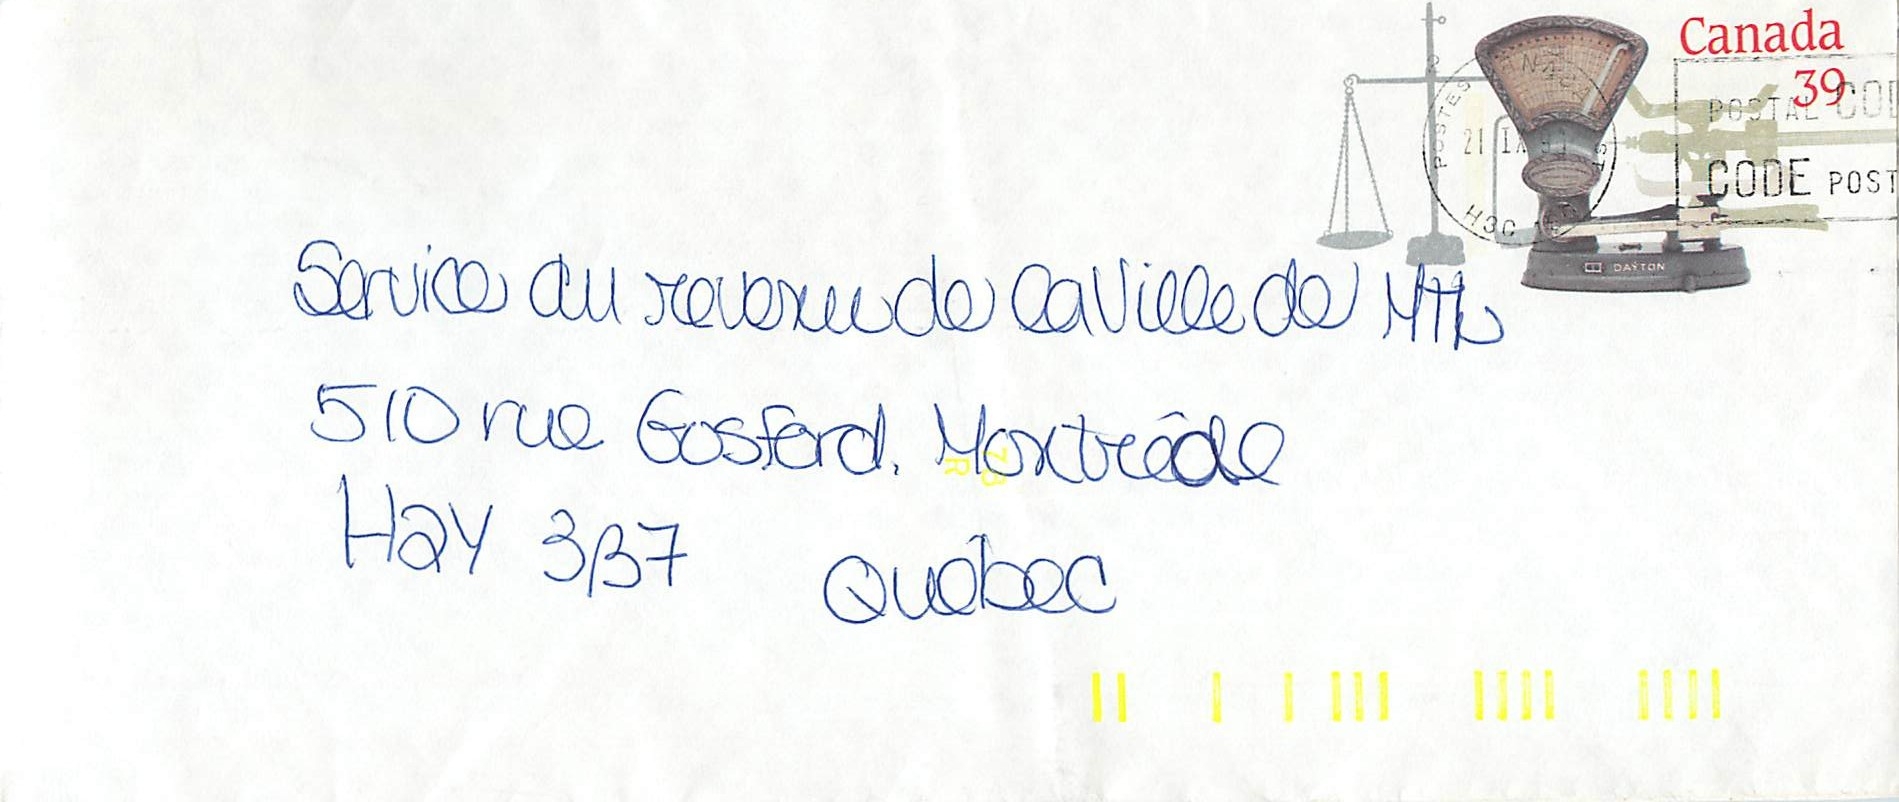 Canada
39
POSTAL COD
CODE POST
POSTES
21 IX
H3C
DAYTON
Service du revenu de la Ville de MTL
510 rue Gosford. Montréale
H2Y 3B7
Québec
78
R